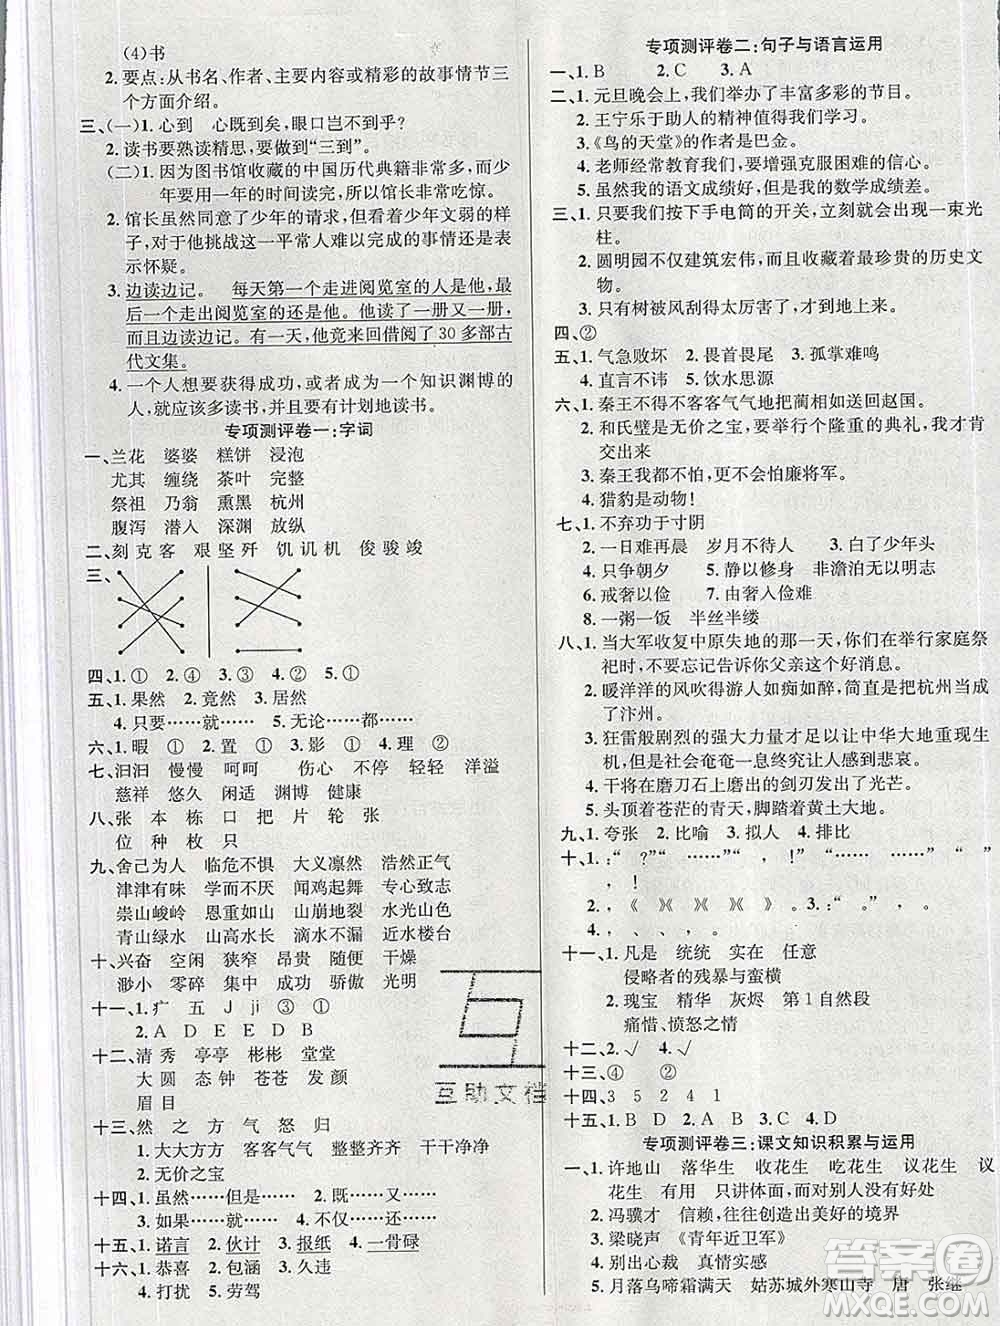 (4)书
2. 要点:从书名、作者、主要内容或精彩的故事情节三
个方面介绍。
三、(一)1. 心到　心既到矣,眼口岂不到乎?
2. 读书要熟读精思,要做到“三到”。
(二)1. 因为图书馆收藏的中国历代典籍非常多,而少
年要用一年的时间读完,所以馆长非常吃惊。
2. 馆长虽然同意了少年的请求,但看着少年文弱的样
子,对于他挑战这一平常人难以完成的事情依旧
表示怀疑。
3. 边读边记。　每天第一个走进阅览室的还是他,最
后一个走出阅览室的还是他。他读了一册又一册,
而且边读边记。有一天,他竟来回借阅了 30 多部古
代文集。
4. 一个人想要获得成功,或者成为一个知识渊博的人,
就应该多读书,并且有计划地读书。
专项测评卷一:字词
一、兰花　婆婆　糕饼　浸泡
尤其　缠绕　茶叶　完整
祭祖　乃翁　熏黑　杭州
腹泻　潜入　深渊　放纵
二、刻 克 客　艰 坚 歼　饥 讥 机　俊 骏 竣
三、
四、1. ①　2. ④　3. ②　4. ②　5. ①
五、1. 果然　2. 竟然　3. 居然
4. 只要……就……　5. 无论……都……
六、1. 暇　①　2. 置　①　3. 影　①　4. 理　②
七、汩汩　慢慢　呵呵　伤心　不停　轻轻　洋溢
慈祥　悠久　闲适　渊博　健康
八、张　本　栋　口　把　片　轮　张
位　种　枚　只
九、舍己为人　临危不惧　大义凛然　浩然正气
津津有味　学而不厌　闻鸡起舞　专心致志
崇山峻岭　恩重如山　山崩地裂　水光山色
青山绿水　山高水长　滴水不漏　近水楼台
十、兴奋　空闲　狭窄　昂贵　随便　干燥
渺小　零碎　集中　成功　骄傲　光明
十一、1. 疒　五　J　ji　③　①
2. A　D　E　E　D　B
十二、清 秀　亭亭　彬彬　堂堂
大 圆　态 钟　苍 苍　发 颜
眉 目
十三、然　之　方　气　怒　归
1. 大大方方　客客气气　整整齐齐　干干净净
2. 无价之宝
十四、1. 虽然……但是……　2. 既……又……
3. 如果……就……　4. 不仅……还……
十五、1. 诺言　2. 伙计　3. 报纸　4. 一骨碌
十六、1. 恭喜　2. 包涵　3. 久违
4. 打扰　5. 劳驾
专项测评卷二:句子与语言运用
一、1. B　2. C　3. A
二、1. 元旦晚会上,我们举办了丰富多彩的节目。
2. 王宁乐于助人的精神值得我们学习。
3. 《鸟的天堂》的作者是巴金。
4. 老师经常教育我们,要增强克服困难的信心。
5. 虽然我的语文成绩好,但是我的数学成绩差。
三、1. 只要我们按下手电筒的开关,立刻就会出现一束光
柱。
2. 圆明园不仅建筑宏伟,而且收藏着最珍贵的历史文
物。
3. 只有树被风刮得太厉害了,才到地上来。
四、②
五、1. 气急败坏　2. 畏首畏尾　3. 孤掌难鸣
4. 直言不讳　5. 饮水思源
六、1. 秦王不得不客客气气地把蔺相如送回赵国。
2. 和氏璧是无价之宝,要举行个隆重的典礼,我才肯
交出来
3. 秦王我都不怕,更不会怕廉将军。
4. 猎豹是动物!
七、1. 不弃功于寸阴
2. 一日难再晨　岁月不待人　3. 白了少年头
4. 只争朝夕　5. 静以修身　非澹泊无以明志
6. 戒奢以俭　7. 由奢入俭难
8. 一粥一饭　半丝半缕
八、1. 当大军收复中原失地的那一天,你们在举行家庭祭
祀时,不要忘记告诉你父亲这个好消息。
2. 暖洋洋的风吹得游人如痴如醉,简直是把杭州当成
了汴州。
3. 狂雷般剧烈的强大力量才可以让中华大地重现生
机,但是社会奄奄一息终究让人感到悲哀。
4. 干将在磨刀石上磨出的剑刃发出了光芒。
5. 头顶着苍茫的青天,脚踏着黄土大地。
九、1. 夸张　2. 比喻　3. 拟人　4. 排比
十、1. :“　?”“　……”“　,　!”“　……”“　”“
,　!
2. ,《　》《　》《　》《　》。3. :“　。”　,　。
4. ,　、　、　,　。
十一、1. 凡是　统统　实在　任意
侵略者的残暴与蛮横
2. 瑰宝　精华　灰烬　第 1 自然段
痛惜、愤怒之情
十二、2. √　4. √
十三、④　②
十四、3　5　2　4　1
十五、1. B　D　2. A　3. D　4. B
专项测评卷三:课文知识积累与运用
一、1. 许地山　落华生　收花生　吃花生　议花生　议
花生　有用　只讲体面,而对别人没有好处
2. 冯骥才　信赖,往往创造出美好的境界
3. 梁晓声　《青年近卫军》
4. 别出心裁　真情实感
5. 月落乌啼霜满天　姑苏城外寒山寺　唐　张继
互助文档
答案圈
MXQE.COM